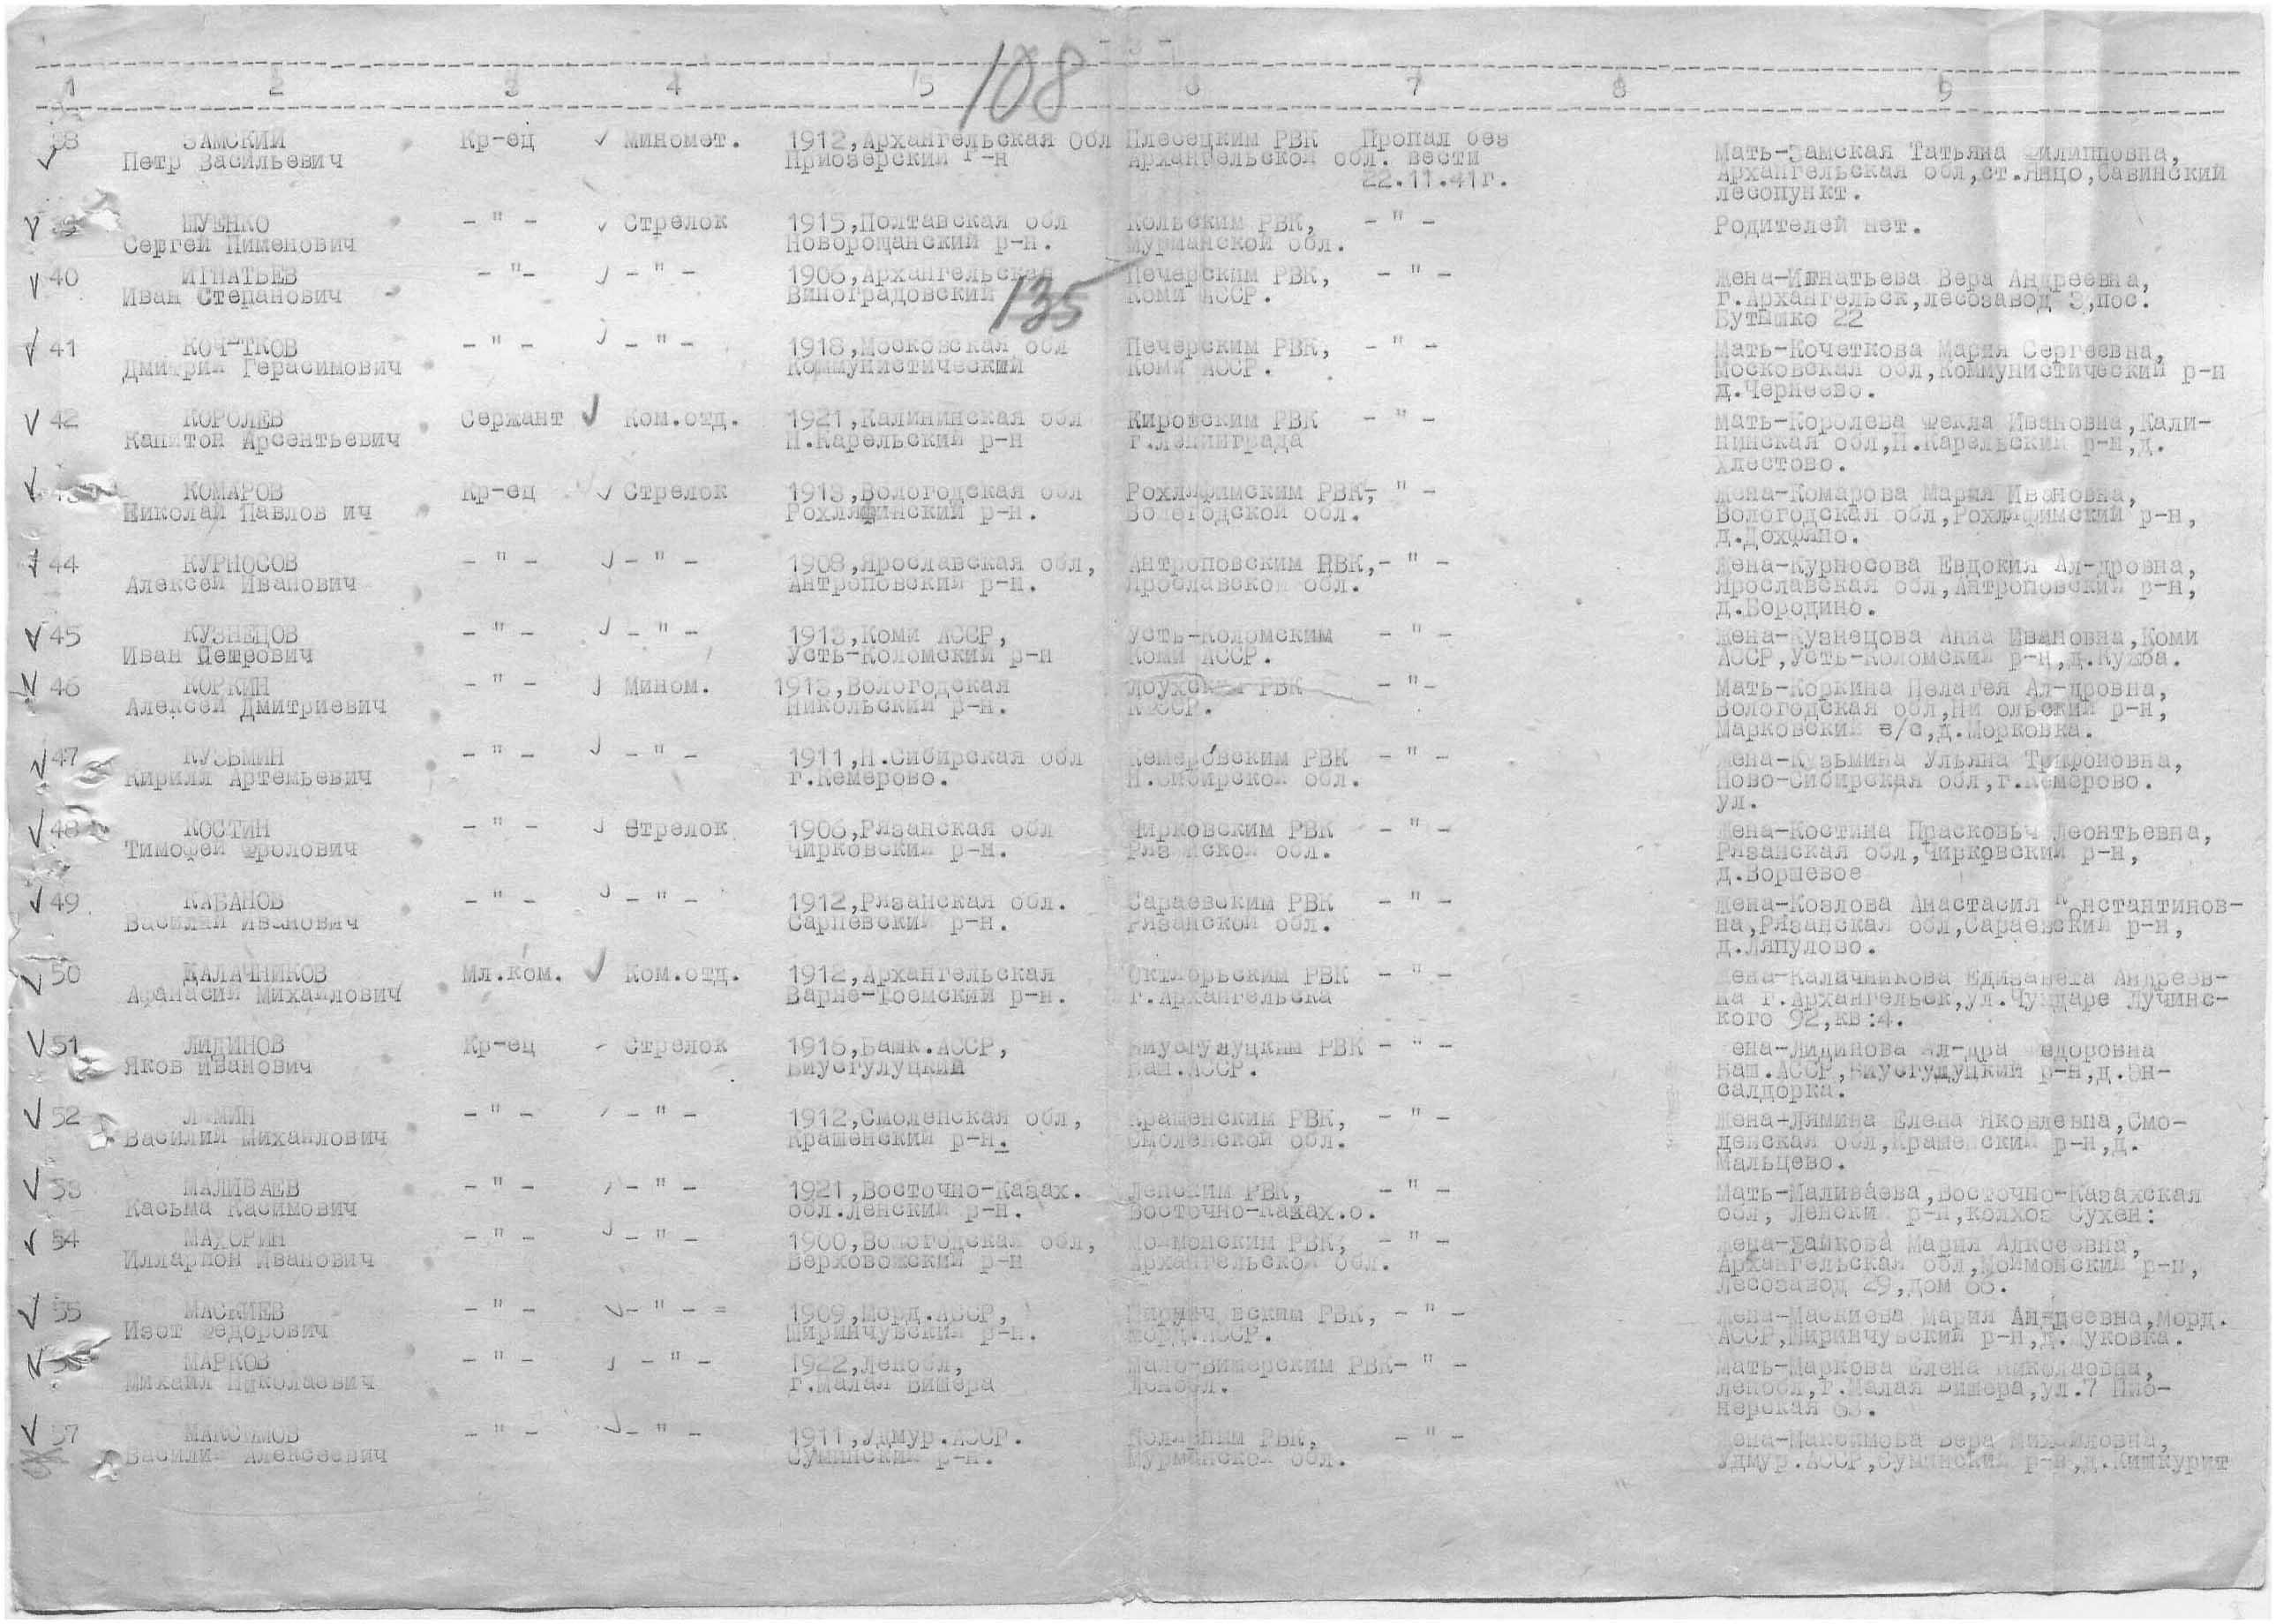 - 3 -
108
1 2 3 4 5 6 7 8 9
38 ЗАМСКИЙ Кр-ец Миномет. 1912,Архангельская обл Плесецким РВК Пропал без
Петр Васильевич Приозерский р-н Архангельской обл. вести
22.11.41г.
Мать-Замская Татьяна Филипповна,
Архангельская обл,ст. Савинский
лесопункт.
ШУЕНКО - " - Стрелок 1915,Полтавская обл Кольским РВК, - " - Родителей нет.
Сергей Пименович Новорощанский р-н. Мурманской обл.
40 ИГНАТЬЕВ - "- - " - 1906,Архангельская Печерским РВК, - " - Жена-Игнатьева Вера Андреевна,
Иван Степанович Виноградовский Коми АССР. г.Архангельск,лесозавод 3,пос.
135
22
41 КОЧ-ТКОВ - " - - " - 1918,Московская обл Печерским РВК, - " - Мать-Кочеткова Мария Сергеевна,
Дмитрий Герасимович Коммунистический Коми АССР. Московская обл,Коммунистический р-н
д.Чернеево.
42 КОРОЛЕВ Сержант Ком.отд. 1921,Калининская обл Кировским РВК - " - Мать-Королева Фекла Ивановна,Кали-
Капитон Арсентьевич Н.Карельский р-н г.Ленинграда нинская обл,Н.Карельский р-н,д.
Хлестово.
КОМАРОВ Кр-ец Стрелок 1913,Вологодская обл РВК, " - Жена-Комарова Мария Ивановна,
Николай Павлов ич р-н. Вологодской обл. Вологодская обл, р-н,
44 КУРНОСОВ - " - - " - 1908,Ярославская обл, Антроповским РВК,- " - Жена-Курносова Евдокия Ал-дровна,
Алексей Иванович Антроповский р-н. Ярославской обл. Ярославская обл,Антроповский р-н,
д.Бородино.
45 КУЗНЕЦОВ - " - - " - 1913,Коми АССР, Усть-Коломским - " - Жена-Кузнецова Анна Ивановна,Коми
Иван Петрович Усть-Коломский р-н Коми АССР. АССР,Усть-Коломский р-н,д.Кужба.
46 КОРКИН - " - Мином. 1913,Вологодская Лоухским РВК - "- Мать-Коркина Пелагея Ал-дровна,
Алексей Дмитриевич Никольский р-н. КФССР. Вологодская обл,Ни ольский р-н,
Марковский в/с,д.Морковка.
47 КУЗЬМИН - " - - " - 1911,Н.Сибирская обл Кемеровским РВК - " - Жена-Кузьмина Ульяна Трифоновна,
Кирилл Артемьевич г.Кемерово. Н.Сибирской обл. Ново-Сибирская обл,г.Кемерово.
ул.
48 КОСТИН - " - Стрелок 1906,Рязанская обл Чирковским РВК - " - Жена-Костина Прасковьч Леонтьевна,
Тимофей Фролович Чирковский р-н. Рязанской обл. Рязанская обл,Чирковский р-н,
д.Воршевое
49 КАБАНОВ - " - - " - 1912,Рязанская обл. Сараевским РВК - " - Жена-Козлова Анастасия Константинов-
Василий Иванович Сарпевский р-н. Рязанской обл. на,Рязанская обл,Сараевский р-н,
д.Ляпулово.
50 КАЛАЧНИКОВ Мл.ком. Ком.отд. 1912,Архангельская Октябрьским РВК - " - Жена-Калачникова Елизавета Андреев-
Афанасий Михайлович Варне-Тоемский р-н. г.Архангельска на г.Архангельск,ул. Лучинс-
кого 92,кв:4.
51 ЛИДИНОВ Кр-ец Стрелок 1916,Башк.АССР, РВК - " - ена-Лидинова Ал-дра Федоровна
Яков Иванович Баш.АССР. Баш.АССР, р-н,д.
салдорка.
52 Л МИН - " - - " - 1912,Смоленская обл, Крашенским РВК, - " - Жена-Лямина Елена Яковлевна,Смо-
Василий Михайлович Крашенский р-н. Смоленской обл. ленская обл,Краше ский р-н,д.
Мальцево.
53 МАЛИВАЕВ - " - - " - 1921,Восточно-Казах. Ленским РВК, - " - Мать-Маливаева,Восточно-Казахская
Касьма Касимович обл.Ленский р-н. Восточно-Казах.о. обл, Ленски р-н,колхоз Сухен:
54 МАХОРИН - " - - " - 1900,Вологодская обл, РВК, - " - Мария
Илларион Иванович Верховожский р-н Архангельской обл. Архангельская обл, р-н,
Лесозавод 29,дом 66.
55 МАСКИЕВ - " - - " - = 1909,Морд.АССР, РВК, - " - Жена-Маскиева Мария Андреевна,Морд.
Изот Федорович Ширинчувский р-н. Морд.АССР. АССР,Ширинчувский р-н,д.
МАРКОВ - " - - " - 1922,Ленобл, Мало-Вишерским РВК- " - Мать-Маркова Елена Николаевна,
Михаил Николаевич г.Малая Вишера Ленобл. Ленобл,г.Малая Вишера,ул.7 Пио-
нерская 63.
57 МАКСИМОВ - " - - " - 1911,Удмур.АССР. Полярным РВК, - " - Жена-Максимова Вера Михайловна,
Василий Алексеевич Суминский р-н. Мурманской обл. Удмур.АССР,Сумински р-н,д.Кишкурит